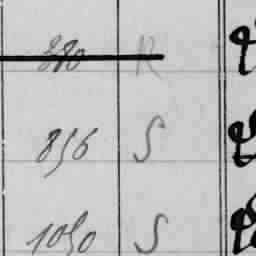 880 R
856 S
1050 S